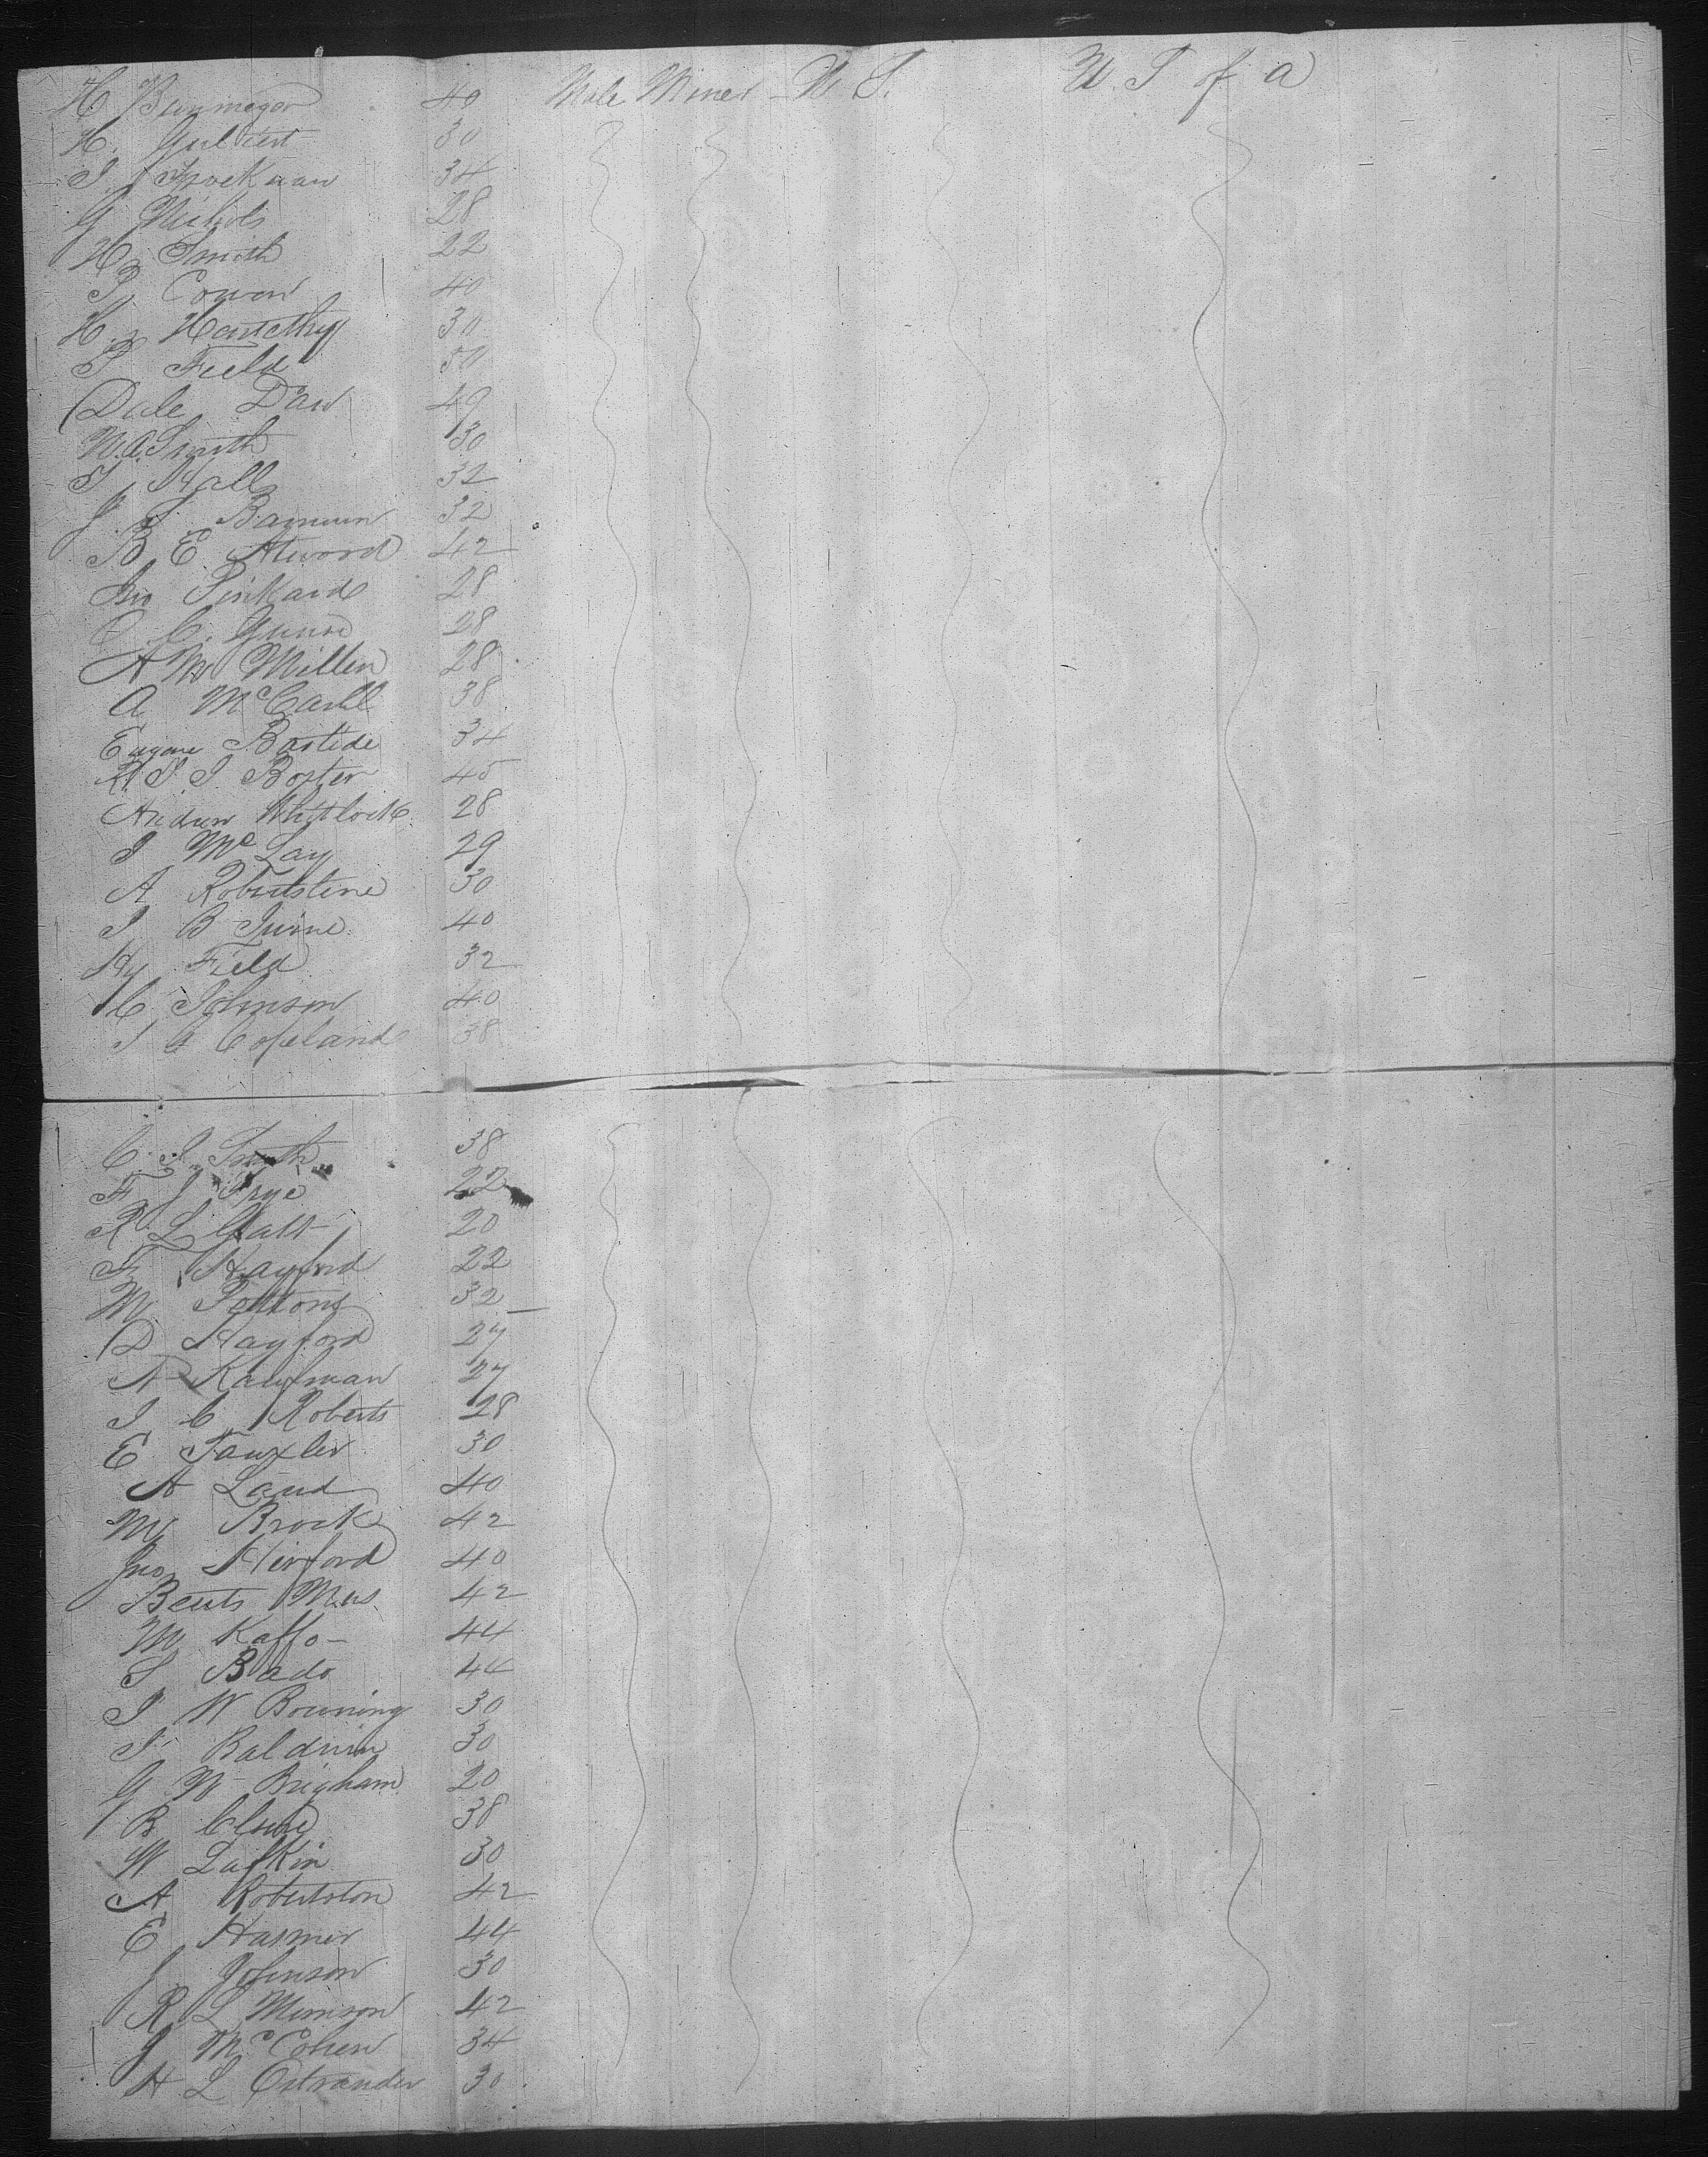 H 40 Male Miner U. S. U S of a
H. 30
J 34
G Nichols 28
H Smith 22
P Cowan 40
H 30
P Field 50
Dale Daw 49
W.A. Smith 30
T Hall 32
J. S. Barnum 32
B E Atwood 42
Jno Pinkard 28
C. 28
A W Miller 28
A McCarll 38
Eugene Bastide 34
Boster 45
Andrew Whitlock 28
J McLay 29
A Robertstine 30
J B 40
Hy Field 32
C Johnson 40
J A Copeland 38
C. J. Smith 38
F J Frye 22
R L 20
F Hayford 22
M 32
D Hayford 27
A Kaufman 27
J C Roberts 28
E Tauxler 30
A Land 40
M Brock 42
Jno Herford 40
42
M Kaffo 44
S Bado 44
J W Browning 30
J Baldwin 30
G W Brigham 20
B Cline 38
W Lufkin 30
A Robertston 42
E Hasmer 44
J Johnson 30
R L Mimson 42
J McCohen 34
H L Ostrander 30